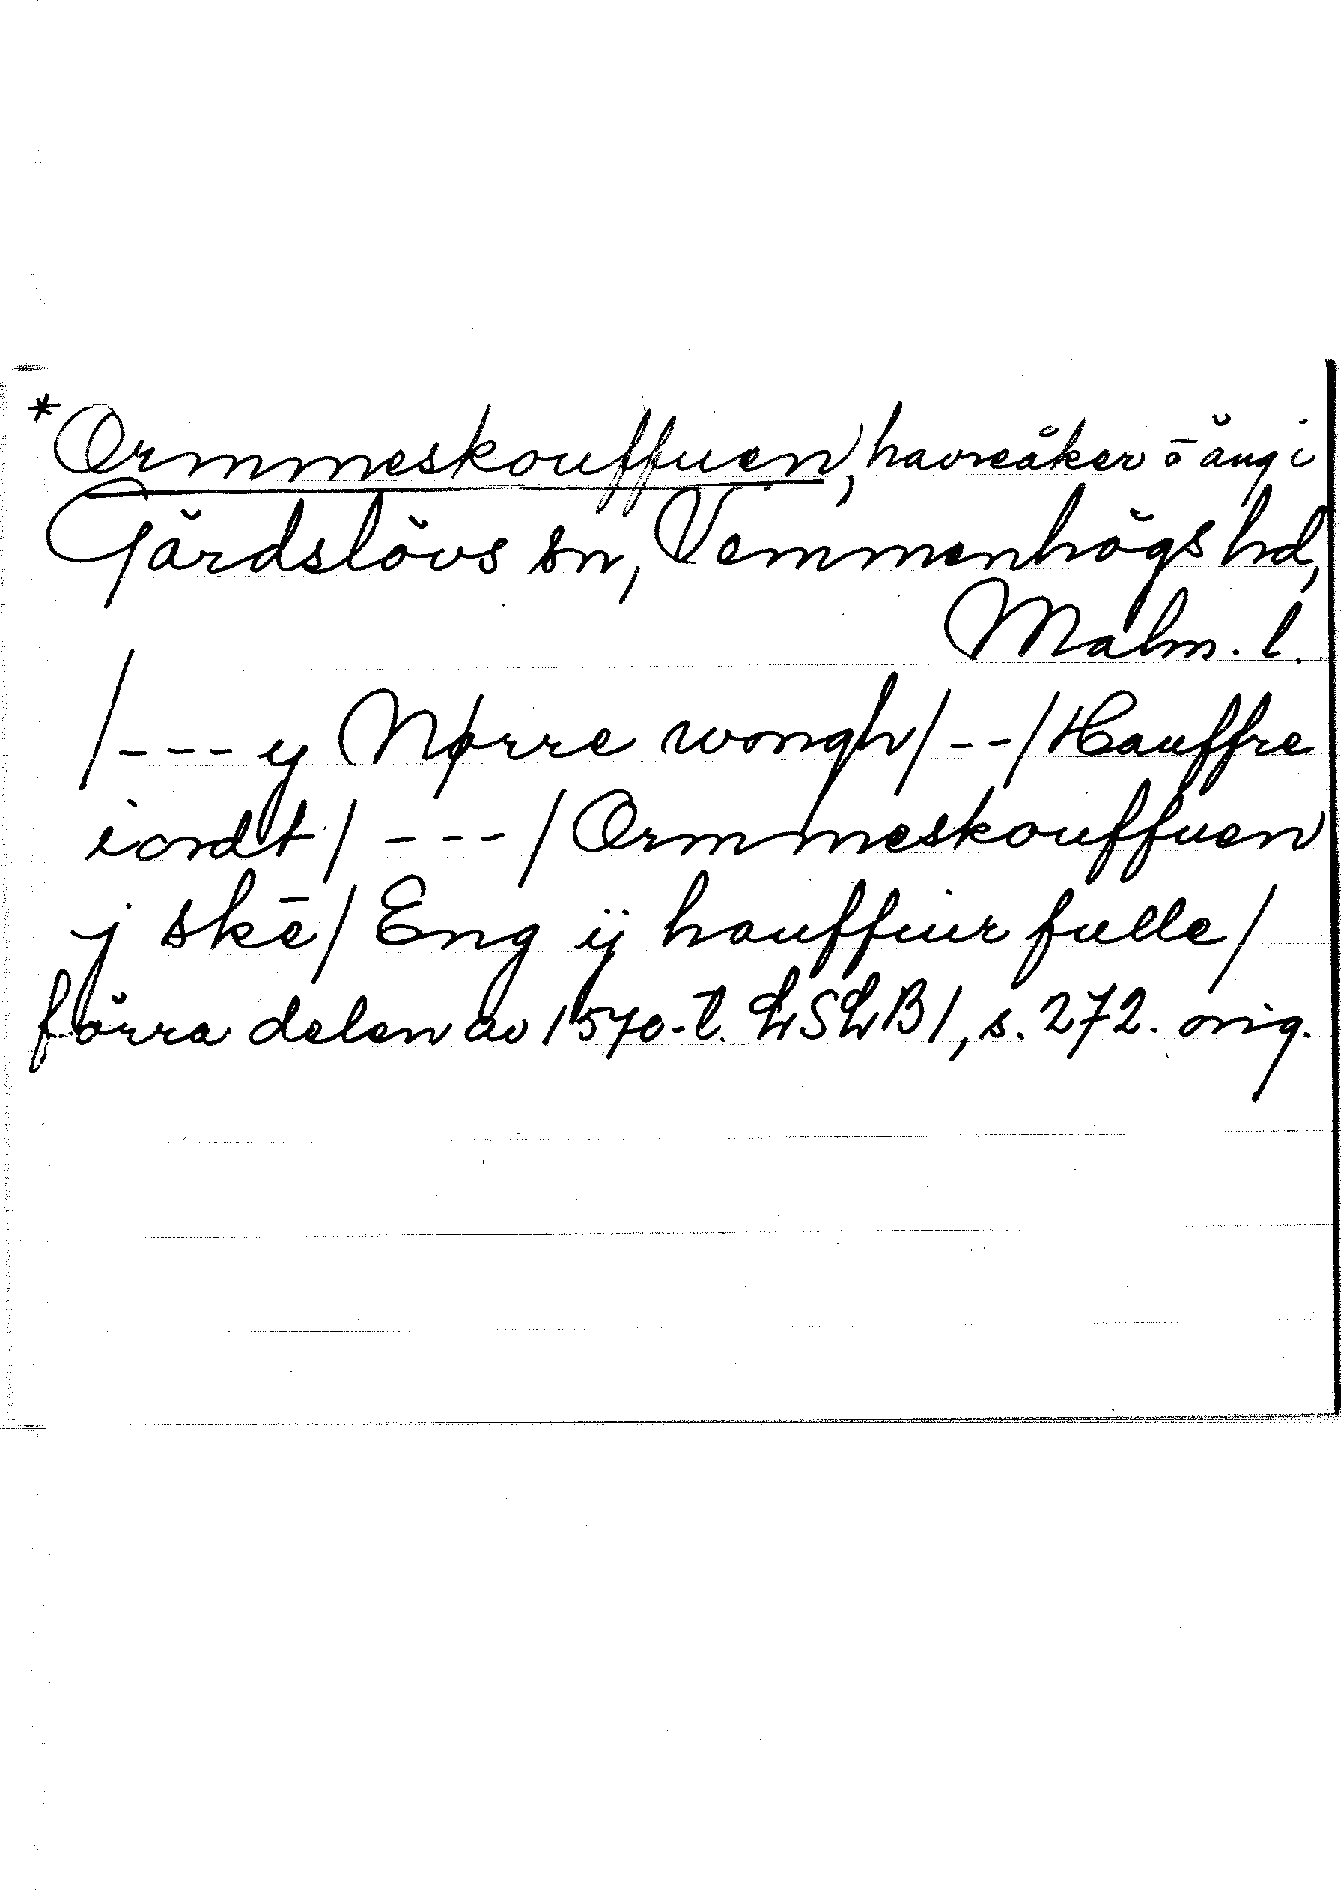 *Ormmeskouffuen, havreåker o äng i
Gärdslövs sn, Vemmenhögs hd,
Malm. l.
/--- y Nørre wongh/--/Hauffre
iordt/---/Ormmeskouffuen
j skē/Eng ij hauffuir fulle/
förra delen av 1570-t. LSLB1, s. 272. orig.